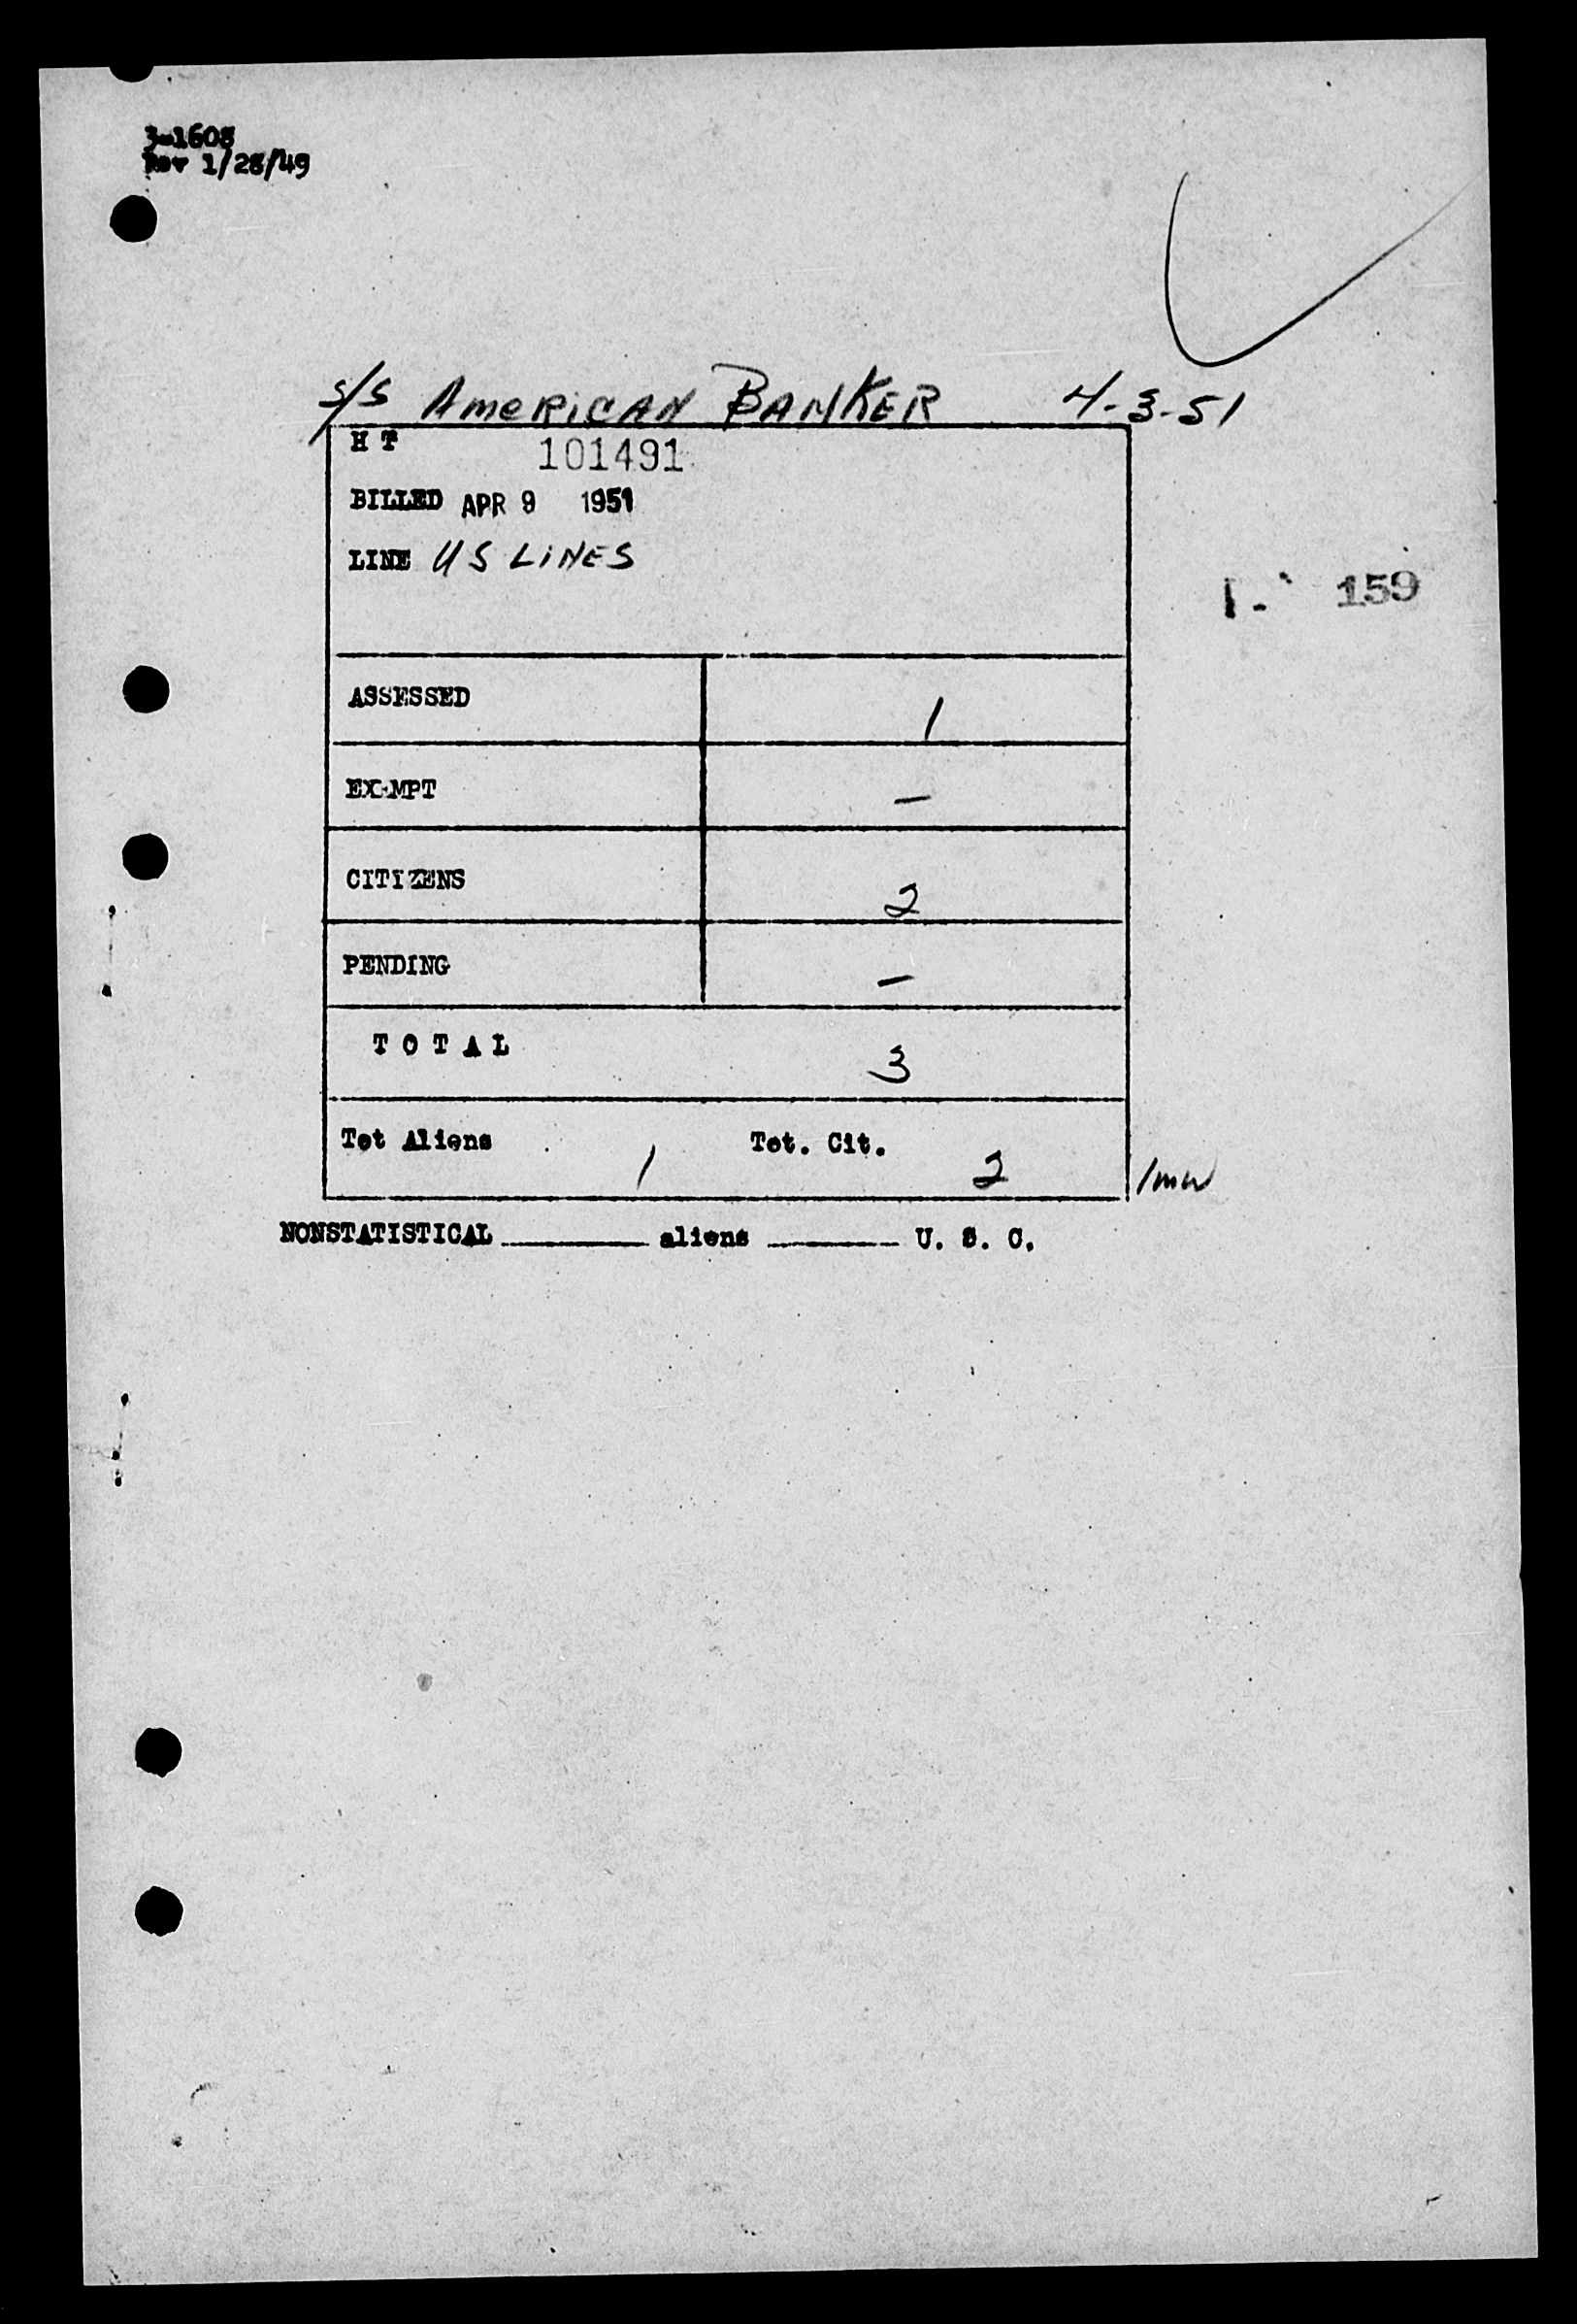 3-1608
Rev 1/28/49
S/S AMERICAN BANKER 4-3-51
H T 101491
BILLED APR 9 1951
LINE US LINES
159
ASSESSED 1
EXEMPT –
CITIZENS 2
PENDING –
T O T A L 3
Tot Aliens 1 Tot. Cit. 2 /mw
NONSTATISTICAL ______ aliens ______ U. S. C.